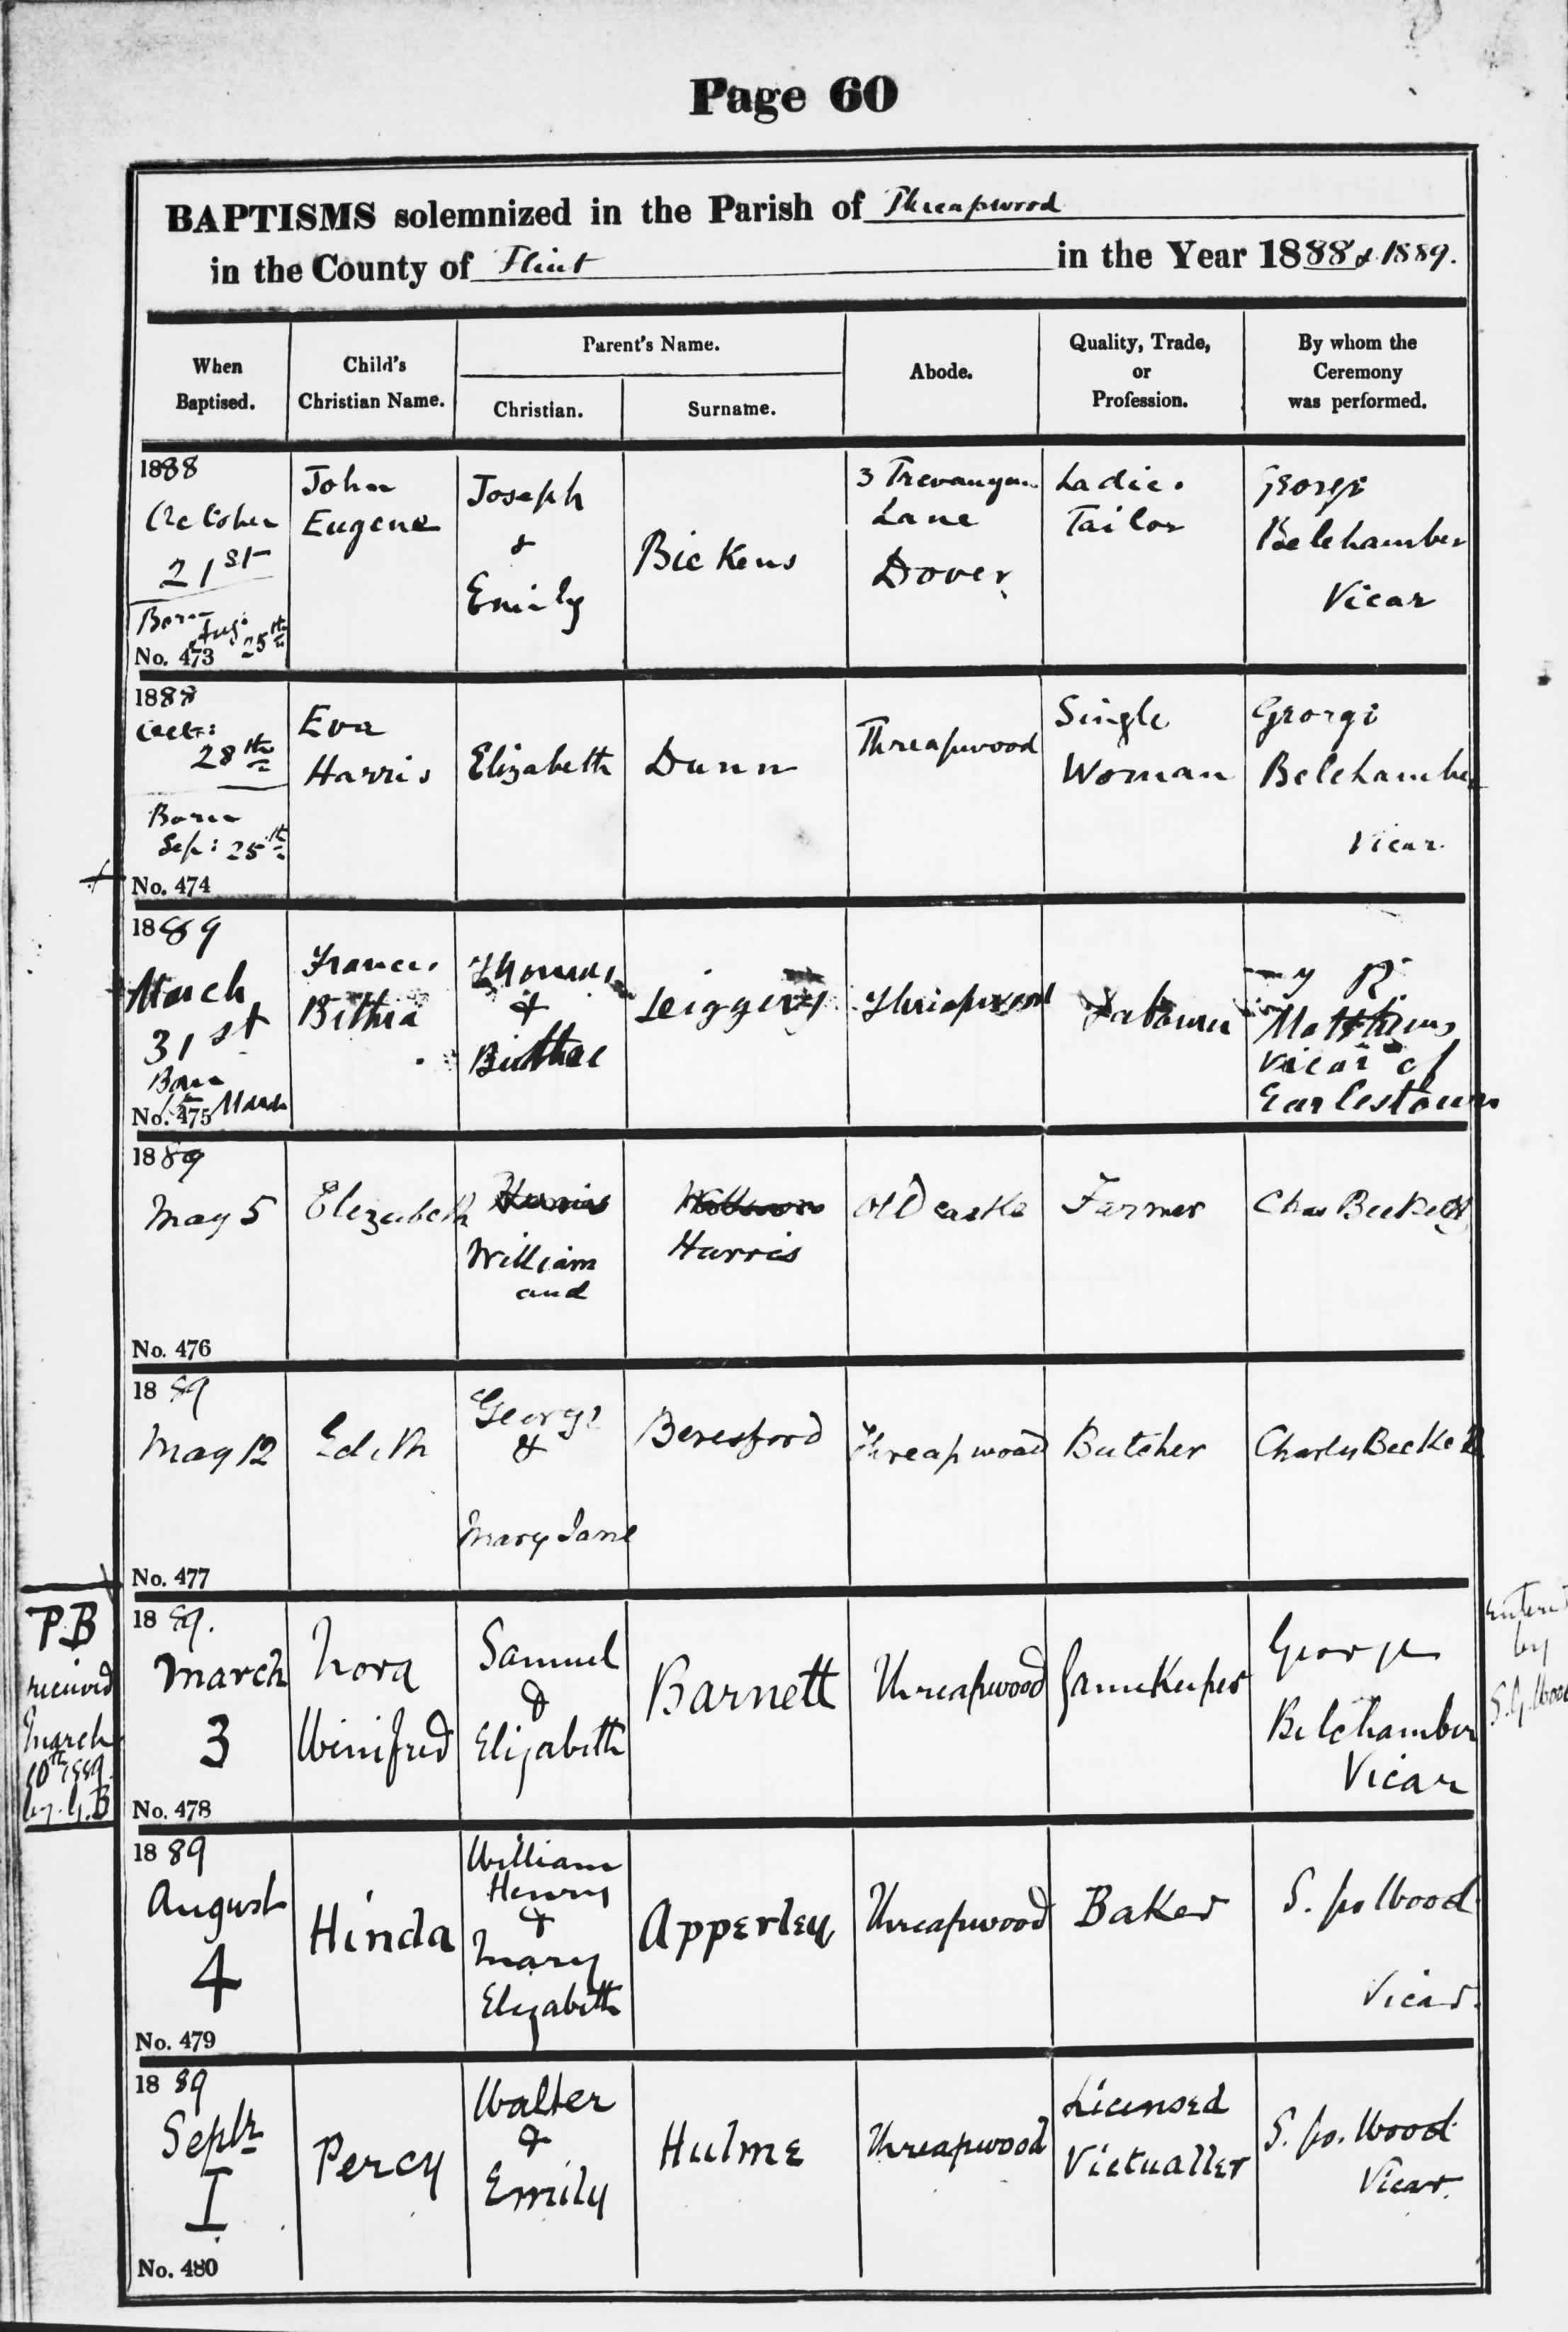 Page 60
BAPTISMS solemnized in the Parish of Threapwood
in the County of Flint in the Year 1888 & 1889.
When
Baptised.
Child's
Christian Name.
Parent's Name.
Christian.
Surname.
Abode.
Quality, Trade,
or
Profession.
By whom the
Ceremony
was performed.
1888
October
21st
Born
Aug: 25th
No. 473
John
Eugene
Joseph
&
Emily
Bickens
3
Lane
Dover
Ladies
Tailor
George
Belchamber
Vicar
1888
Oct:
28th
Born
Sep: 25th
No. 474
Eva
Harris
Elizabeth
Dunn
Threapwood
Single
Woman
George
Belchamber
Vicar
1889
March
31st
Born
March
No. 475
Frances
Bithia
Thomas
&
Threapwood
Labourer
Matthews
Vicar of
Earlestown
1889
May 5
No. 476
Elizabeth
William
and
Harris
Oldcastle
Farmer
Chas Beckett
1889
May 12
No. 477
Edith
George
&
Mary Jane
Beresford
Threapwood
Butcher
Charles Beckett
P.B
received
March
10th 1889
by G.B
1889.
March
3
No. 478
Nora
Winifred
Samuel
&
Elizabeth
Barnett
Threapwood
Gamekeeper
George
Belchamber
Vicar
entered
by
S. G. Wood
1889
August
4
No. 479
Hinda
William
Henry
&
Mary
Elizabeth
Apperley
Threapwood
Baker
S. Wood
Vicar.
1889
Septr
1
No. 480
Percy
Walter
&
Emily
Hulme
Threapwood
Licensed
Victualler
S. Wood
Vicar.